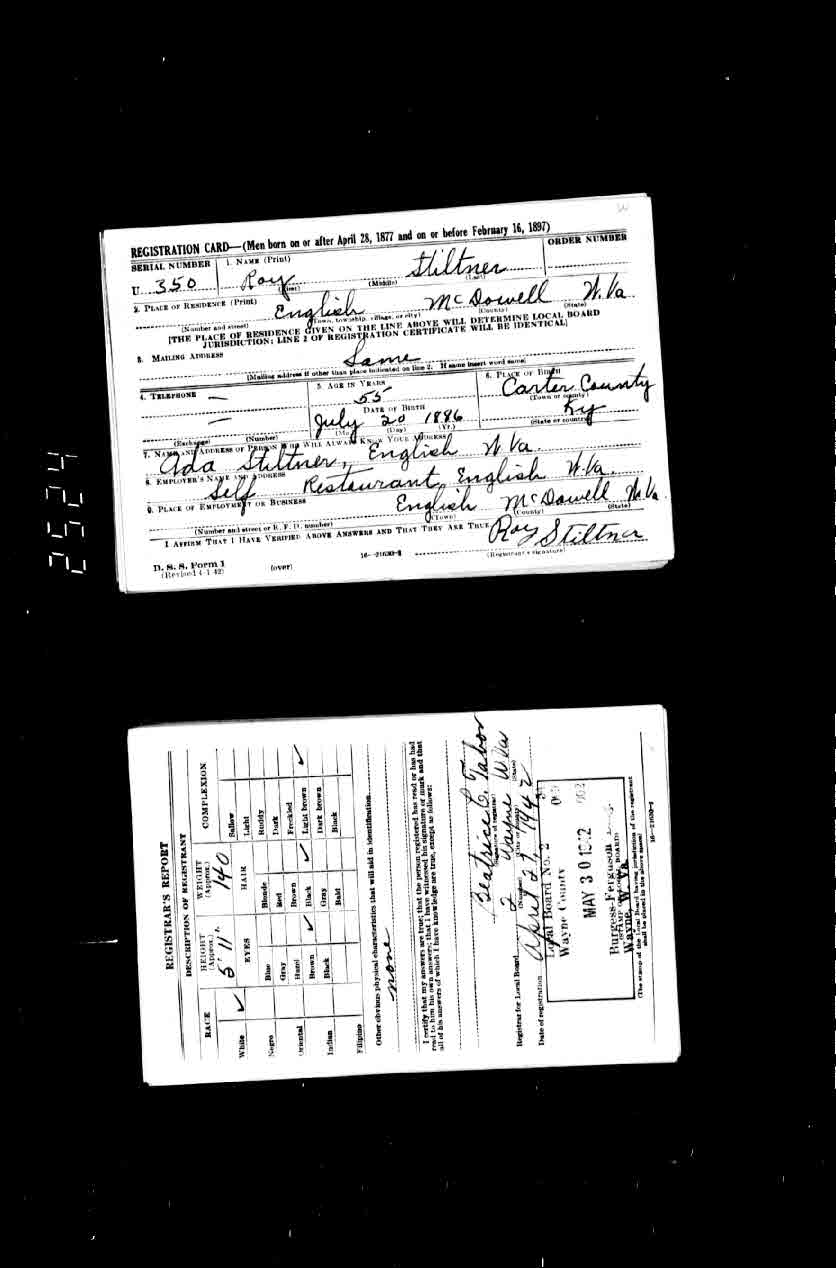 REGISTRATION CARD—(Men born on or after April 28, 1877 and on or before February 16, 1897)
SERIAL NUMBER 1. NAME (Print) ORDER NUMBER
U 350 Roy Stiltner
(First) (Middle) (Last)
2. PLACE OF RESIDENCE (Print)
English McDowell W. Va
(Number and street) (Town, township, village, or city) (County) (State)
[THE PLACE OF RESIDENCE GIVEN ON THE LINE ABOVE WILL DETERMINE LOCAL BOARD
JURISDICTION; LINE 2 OF REGISTRATION CERTIFICATE WILL BE IDENTICAL]
3. MAILING ADDRESS
Same
(Mailing address if other than place indicated on line 2. If same insert word same)
4. TELEPHONE 5. AGE IN YEARS 6. PLACE OF BIRTH
— 55 Carter County
(Town or county)
DATE OF BIRTH
— July 20 1886 Ky
(Exchange) (Number) (Mo.) (Day) (Yr.) (State or country)
7. NAME AND ADDRESS OF PERSON WHO WILL ALWAYS KNOW YOUR ADDRESS
Ada Stiltner, English W Va.
8. EMPLOYER'S NAME AND ADDRESS
Self Restaurant, English W. Va.
9. PLACE OF EMPLOYMENT OR BUSINESS
English McDowell W Va.
(Number and street or R. F. D. number) (Town) (County) (State)
I AFFIRM THAT I HAVE VERIFIED ABOVE ANSWERS AND THAT THEY ARE TRUE.
Roy Stiltner
D. S. S. Form 1 16—21630-2 (Registrant's signature)
(Revised 4-1-42) (over)
2524
REGISTRAR'S REPORT
DESCRIPTION OF REGISTRANT
RACE HEIGHT (Approx.) WEIGHT (Approx.) COMPLEXION
5' 11" 140
White ✓ EYES HAIR Sallow
Light
Negro Blue Blonde Ruddy
Gray Red Dark
Oriental Hazel Brown Freckled
Brown ✓ Black ✓ Light brown ✓
Indian Black Gray Dark brown
Bald Black
Filipino
Other obvious physical characteristics that will aid in identification
none
I certify that my answers are true; that the person registered has read or has had
read to him his own answers; that I have witnessed his signature or mark and that
all of his answers of which I have knowledge are true, except as follows:
Beatrice C. Tabor
(Signature of registrar)
Registrar for Local Board 2 Wayne W Va
(Number) (City or county) (State)
Date of registration April 27, 1942
Local Board No. 2
Wayne County
MAY 3 0 1942
Burgess-Ferguson
Wayne, W. Va.
(STAMP OF LOCAL BOARD)
(The stamp of the Local Board having jurisdiction of the registrant
shall be placed in the above space)
16—21630-2